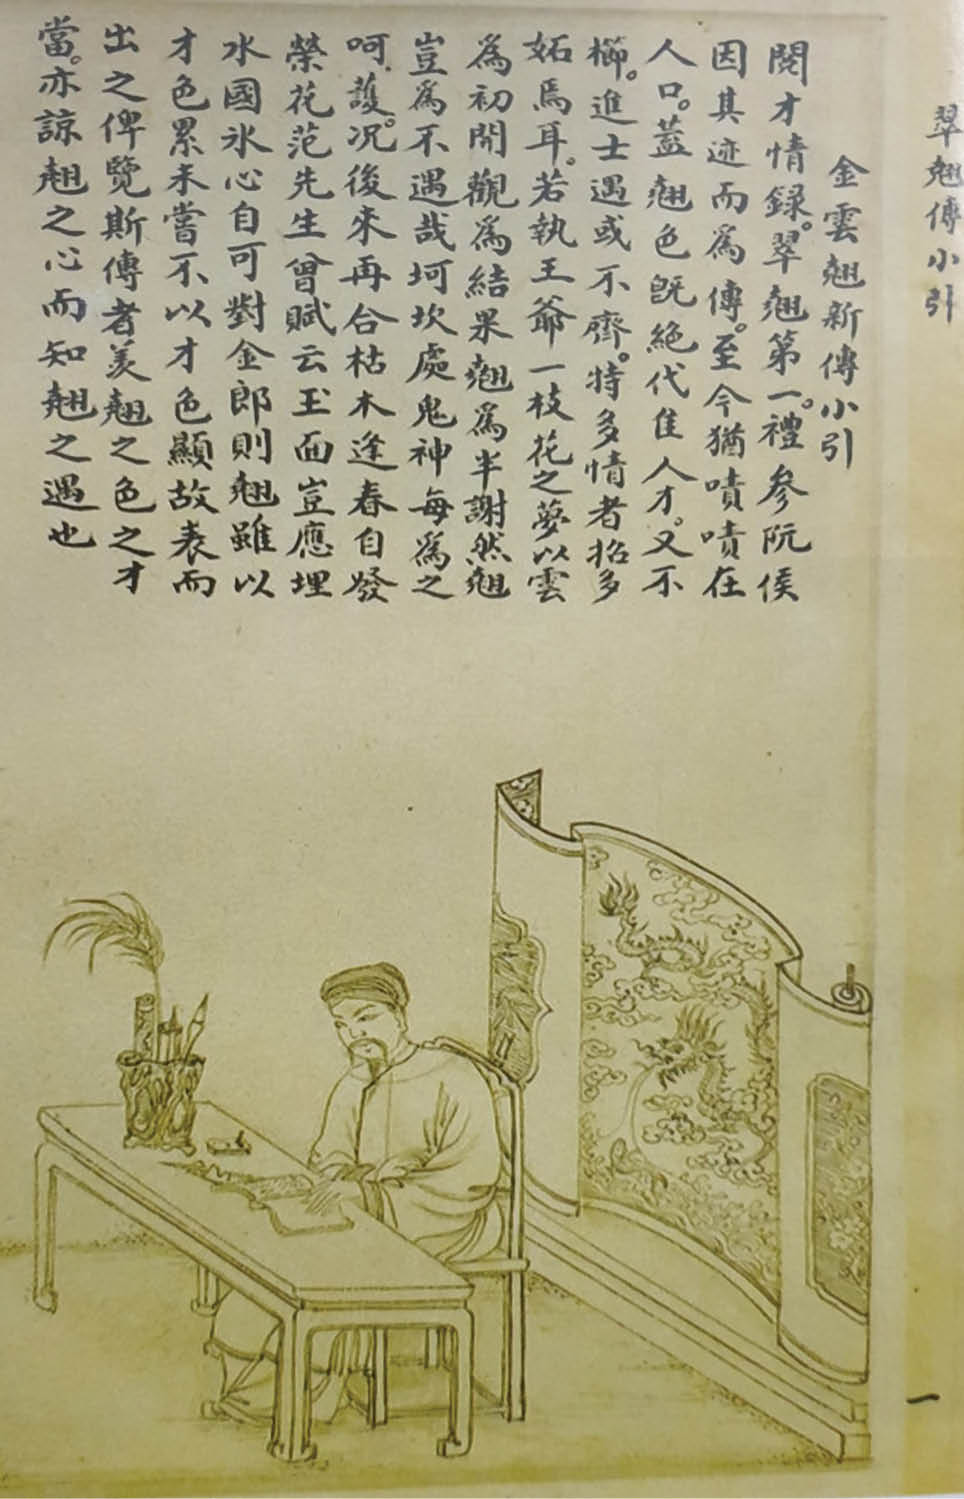 翠翹傳小引
金雲翹新傳小引
閱才情録。翠翹第一。禮參阮侯
因其迹而爲傳。至今猶嘖嘖在
人口。蓋翹色既絶代隹人才。又不
櫛。進士遇或不齊。特多情者招多
妬焉耳。若執王爺一枝花之夢以雲
爲初開觀爲結果翹爲半謝然翹
豈爲不遇哉坷坎處鬼神每爲之
呵護。况後來再合枯木逢春自發
榮花范先生曾賦云玉面豈應埋
水國氷心自可對金郎則翹雖以
才色累未嘗不以才色顯故表而
出之俾覽斯傳者羡翹之色之才
當。亦諒翹之心而知翹之遇也
一